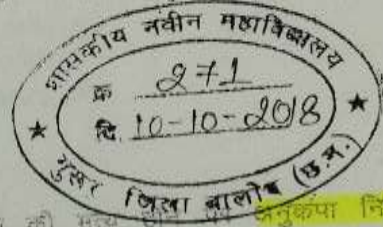 शासकीय नवीन महाविद्यालय
क्र 271
दि. 10-10-2018
गुरूर जिला बालोद (छ.ग.)
की मृत्यु अनुकंपा